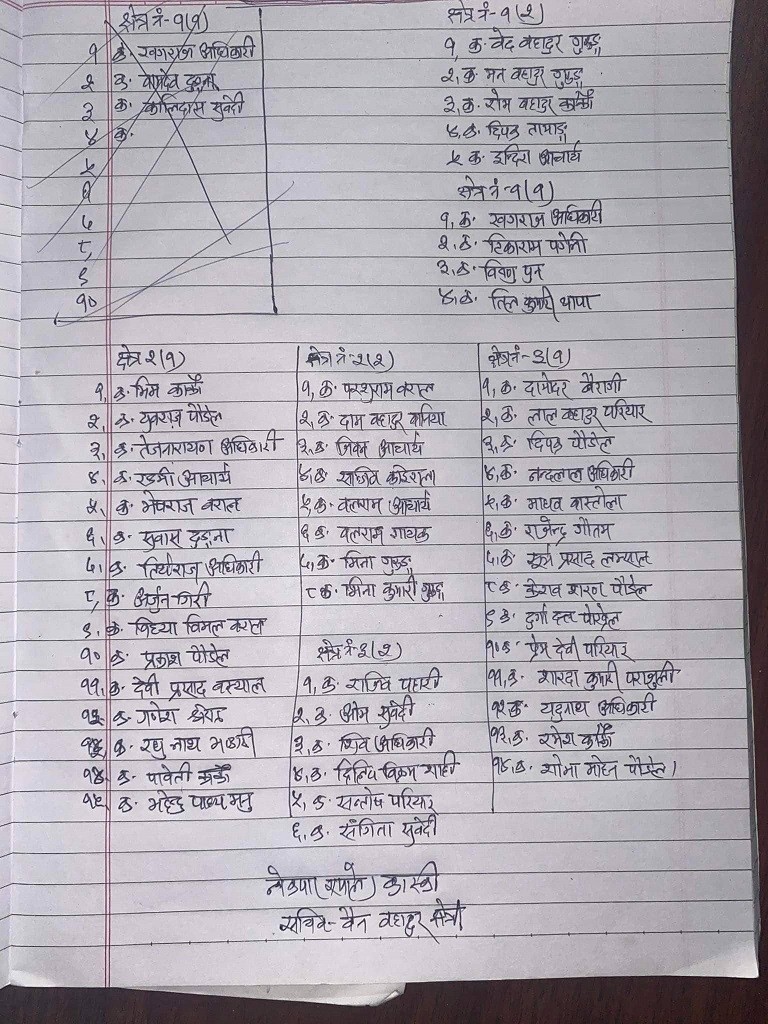 क्षेत्र नं-१(१)
१ क. खगराज अधिकारी
२ क. वामदेव ढुङ्गाना
३ क. कालिदास सुवेदी
४ क.
५
६
७
८
९
१०
क्षेत्र नं-१(२)
१, क. वेद बहादुर गुरुङ्ग
२, क. मन बहादुर गुरुङ्ग
३, क. सोम बहादुर कार्की
४, क. दिपक तामाङ्ग
५ क. इन्दिरा आचार्य
क्षेत्र नं-१(१)
१, क. खगराज अधिकारी
२, क. टिकाराम पगेनी
३, क. विष्णु पुन
४, क. तिल कुमारी थापा
क्षेत्र २(१)
१, क. भिम कार्की
२, क. युवराज पौडेल
३, क. तेजनारायण अधिकारी
४, क. आचार्य
५, क. मेघराज बराल
६, क. सुवास ढुङ्गाना
७, क. अधिकारी
८, क. अर्जुन गिरी
९, क. विद्या विमल बराल
१० क. प्रकाश पौडेल
११, क. देवी प्रसाद वस्याल
१२ क. गणेश
१३, क. रघु नाथ भण्डारी
१४ क. पार्वती कार्की
१५ क. महेन्द्र
क्षेत्र नं-२(२)
१, क. परशुराम बराल
२, क. दाम बहादुर
३, क. जिवन आचार्य
४, क. सञ्जिव कोइराला
५, क. बलराम आचार्य
६ क. बलराम गायक
७, क. मिना गुरुङ्ग
८ क. मिना कुमारी गुरुङ्ग
क्षेत्र नं-३(२)
१, क. राजिव पहारी
२, क. ओम सुवेदी
३, क. शिव अधिकारी
४, क. दिलिप विक्रम शाही
५, क. सन्तोष परियार
६, क. संगिता सुवेदी
क्षेत्र नं-३(१)
१, क. दामोदर बैरागी
२, क. लाल बहादुर परियार
३, क. दिपक पौडेल
४, क. नन्दलाल अधिकारी
५, क. माधव वास्तोला
६, क. राजेन्द्र गौतम
७, क. सूर्य प्रसाद लम्साल
८ क. केशव शरण पौडेल
९ क. दुर्गा दत्त पौडेल
१० क. प्रेम देवी परियार
११, क. शारदा कुमारी पराजुली
१२ क. यदुनाथ अधिकारी
१३, क. रमेश कार्की
१४, क. शोभा मोहन पौडेल।
नेकपा (एमाले) कास्की
सचिव- चैन बहादुर क्षेत्री